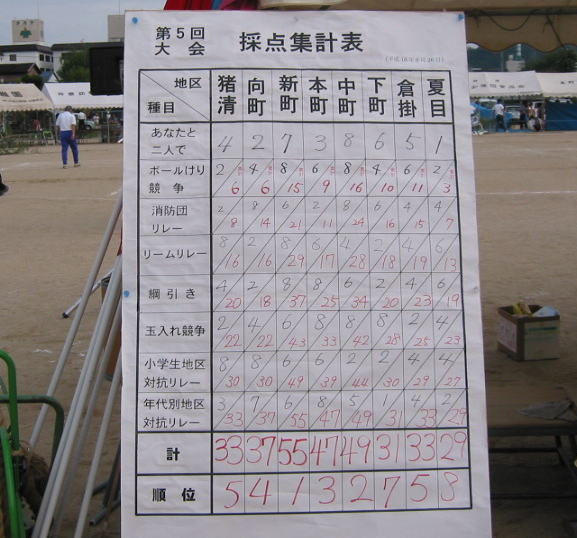 第5回
大会
採点集計表
(平成18年8月20日)
地区 猪清 向町 新町 本町 中町 下町 倉掛 夏目
種目
あなたと二人で 4 2 7 3 8 6 5 1
ボールけり競争 2/6 4/6 8/15 6/9 8/16 4/10 6/11 2/3
消防団リレー 2/8 8/14 6/21 2/11 8/24 6/16 4/15 4/7
リームリレー 8/16 2/16 8/29 6/17 4/28 2/18 4/19 6/13
綱引き 4/20 2/18 8/37 8/25 6/34 2/20 4/23 6/19
玉入れ競争 2/22 4/22 6/43 8/33 8/42 8/28 2/25 4/23
小学生地区対抗リレー 8/30 8/30 6/49 6/39 2/44 2/30 4/29 4/27
年代別地区対抗リレー 3/33 7/37 6/55 8/47 5/49 1/31 4/33 2/29
計 33 37 55 47 49 31 33 29
順位 5 4 1 3 2 7 5 8